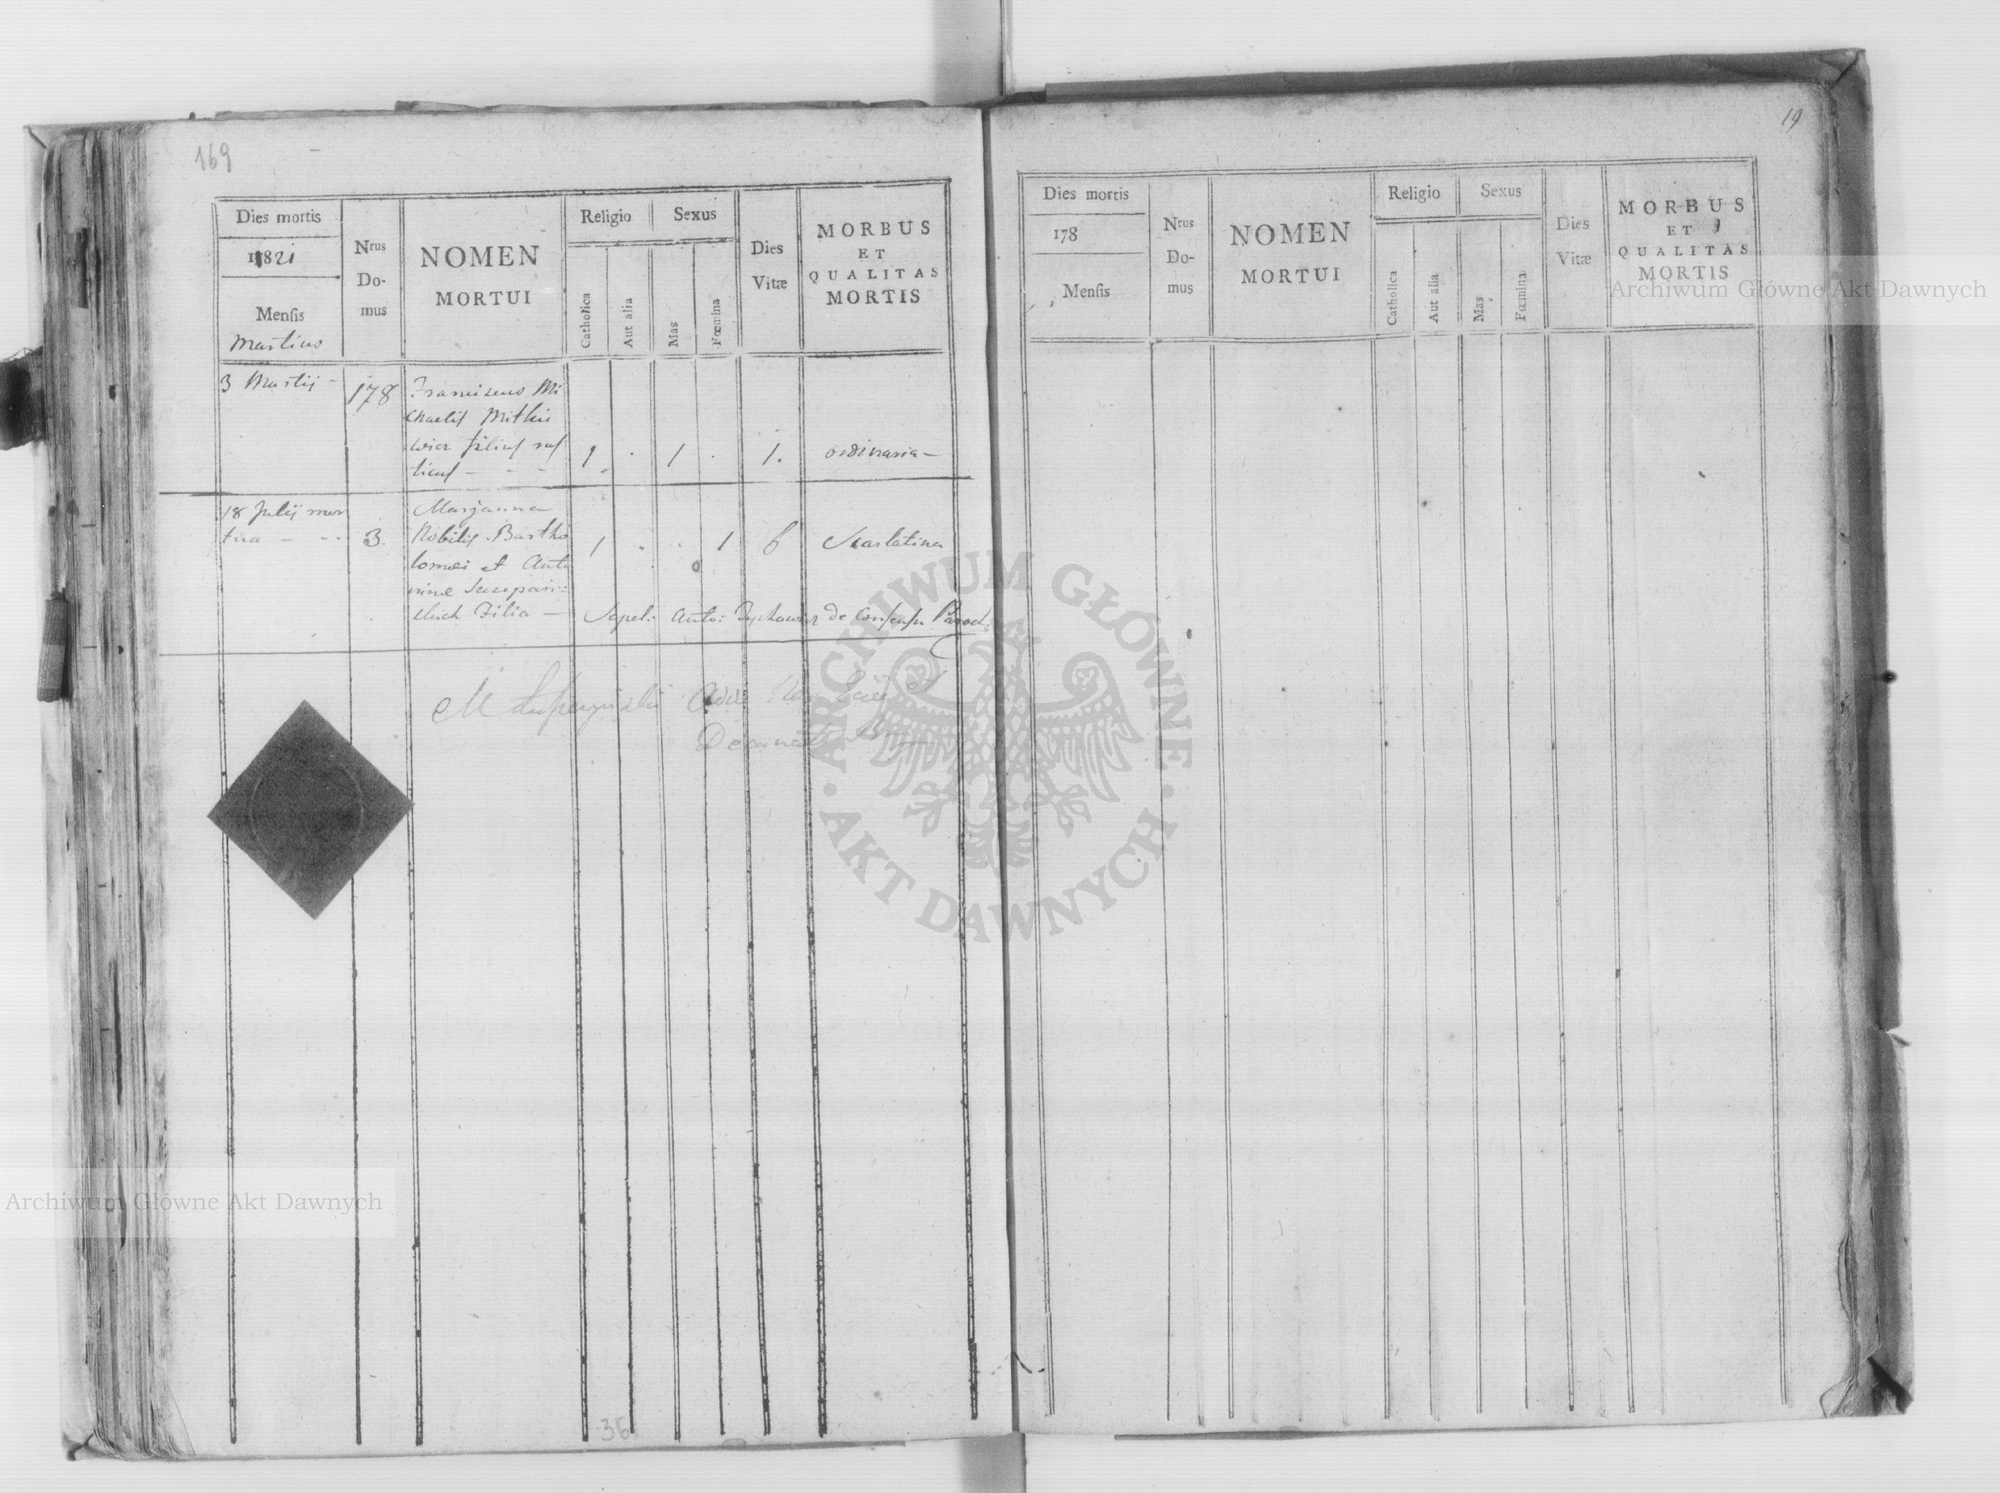 169
Dies mortis
1821
Mensis
Martius
Nrus
Do-
mus
NOMEN
MORTUI
Religio
Catholica
Aut alia
Sexus
Mas
Fœmina
Dies
Vitæ
MORBUS
ET
QUALITAS
MORTIS
3 Martij -
178
Franciscus Mi
chaelis
filius rus
ticus - - -
1 . 1 . 1. ordinaria -
18 Julij mor
tua - - -
3.
Marjanna
Nobilis Bartho
lomei et Anto
ninæ
Filia -
1 . . 1 6 Scarlatina
Sepel: Anto: de Consensu Paroch
36
19
Dies mortis
178
Mensis
Nrus
Do-
mus
NOMEN
MORTUI
Religio
Catholica
Aut alia
Sexus
Mas
Fœmina
Dies
Vitæ
MORBUS
ET
QUALITAS
MORTIS
Archiwum Główne Akt Dawnych
ARCHIWUM GŁÓWNE · AKT DAWNYCH ·
Archiwum Główne Akt Dawnych